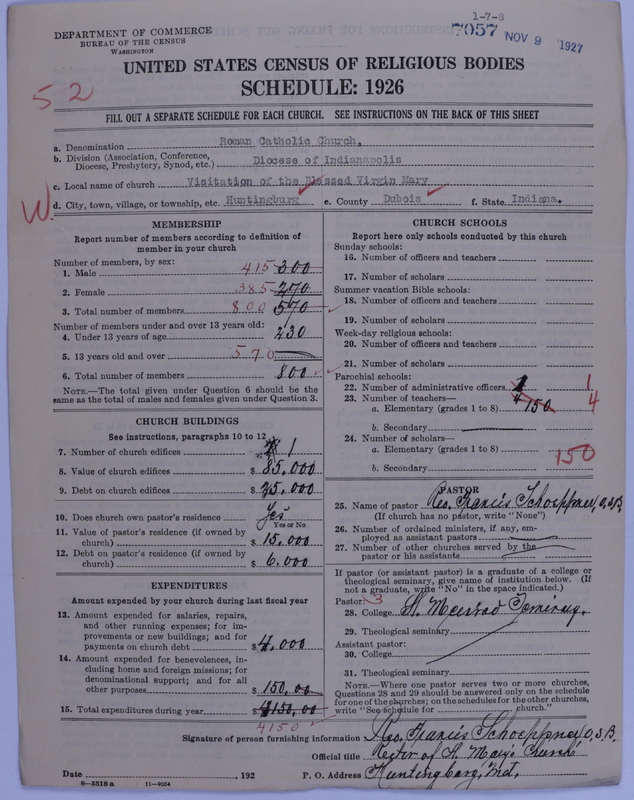 1-7-8
7057 NOV 9 1927
DEPARTMENT OF COMMERCE
BUREAU OF THE CENSUS
WASHINGTON
UNITED STATES CENSUS OF RELIGIOUS BODIES
SCHEDULE: 1926
52
FILL OUT A SEPARATE SCHEDULE FOR EACH CHURCH. SEE INSTRUCTIONS ON THE BACK OF THIS SHEET
a. Denomination Roman Catholic Church.
b. Division (Association, Conference, Diocese, Presbytery, Synod, etc.) Diocese of Indianapolis
c. Local name of church Visitation of the Blessed Virgin Mary
W. d. City, town, village, or township, etc. Huntingburg e. County Dubois f. State Indiana.
MEMBERSHIP
Report number of members according to definition of
member in your church
Number of members, by sex:
1. Male 415 300
2. Female 385 270
3. Total number of members 800 570
Number of members under and over 13 years old:
4. Under 13 years of age 230
5. 13 years old and over 570
6. Total number of members 800
NOTE.—The total given under Question 6 should be the
same as the total of males and females given under Question 3.
CHURCH BUILDINGS
See instructions, paragraphs 10 to 12
7. Number of church edifices 1
8. Value of church edifices $ 85,000
9. Debt on church edifices $ 25,000
10. Does church own pastor's residence Yes
Yes or No
11. Value of pastor's residence (if owned by
church) $ 15,000
12. Debt on pastor's residence (if owned by
church) $ 6,000
EXPENDITURES
Amount expended by your church during last fiscal year
13. Amount expended for salaries, repairs,
and other running expenses; for im-
provements or new buildings; and for
payments on church debt $ 4,000
14. Amount expended for benevolences, in-
cluding home and foreign missions; for
denominational support; and for all
other purposes $ 150,00
15. Total expenditures during year $ 4150,00
4150
CHURCH SCHOOLS
Report here only schools conducted by this church
Sunday schools:
16. Number of officers and teachers
17. Number of scholars
Summer vacation Bible schools:
18. Number of officers and teachers
19. Number of scholars
Week-day religious schools:
20. Number of officers and teachers
21. Number of scholars
Parochial schools:
22. Number of administrative officers 1 1
23. Number of teachers—
a. Elementary (grades 1 to 8) 4 150 4
b. Secondary
24. Number of scholars—
a. Elementary (grades 1 to 8) 150
b. Secondary
PASTOR
25. Name of pastor Rev. Francis Schoeppner, O.S.B.
(If church has no pastor, write "None")
26. Number of ordained ministers, if any, em-
ployed as assistant pastors
27. Number of other churches served by the
pastor or his assistants
If pastor (or assistant pastor) is a graduate of a college or
theological seminary, give name of institution below. (If
not a graduate, write "No" in the space indicated.)
Pastor: 3
28. College St. Meinrad Seminary.
29. Theological seminary
Assistant pastor:
30. College
31. Theological seminary
NOTE.—Where one pastor serves two or more churches,
Questions 28 and 29 should be answered only on the schedule
for one of the churches; on the schedules for the other churches,
write "See schedule for church."
Signature of person furnishing information Rev. Francis Schoeppner O.S.B.
Official title Rector of St. Mary's Church
Date , 192 P. O. Address Huntingburg, Ind.
8—5518 a 11—9054